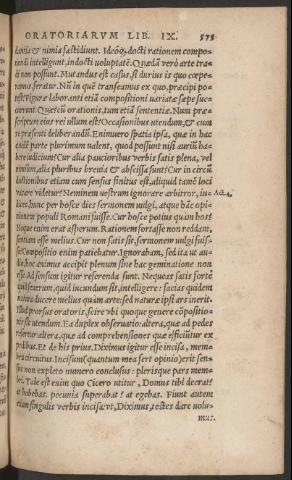 ORATORIARVM LIB. IX. 575
danis & nimia fastidiunt. Ideoq; docti rationem compo-
nendi intelligunt, indocti uoluptatē. Quædā verò arte tra-
di non possunt. Mutandus est casus, si durius is quo cœpe-
ramus, feratur. Nū in quē transeamus ex quo, præcipi po-
test? Figuræ laboranti etiā compositioni uariatæ sæpe suc-
currunt. Quæ cū orationis, tum etiā sententiæ. Num præ-
scriptum eius rei ullum est? Occasionibus utendum, & cum
re præsenti deliberandū. Enimuero spatia ipsa, quæ in hac
quidē parte plurimum ualent, quod possunt nisi auriū ha-
bere iudicium? Cur alia paucioribus verbis satis plena, vel
nimium, alia pluribus breuia & abscissa sunt? Cur in circū
ductionibus etiam cum sensus finitus est, aliquid tamē loci
vacare videtur? Neminem vestrum ignorare arbitror, iu-
dices, hunc per hosce dies sermonem uulgi, atque hāc opi-
nionem populi Romani fuisse. Cur hosce potius quàm hos?
Neque enim erat asperum. Rationem fortasse non reddam,
sentiam esse melius. Cur non satis sit, sermonem uulgi fuis-
se? Compositio enim patiebatur. Ignorabam, sed ita ut au-
dio hoc animus accipit plenum sine hac geminatione non
esse. Ad sensum igitur referenda sunt. Nequeas satis fortè
quid seuerum, quid iucundum sit, intelligere: facias quidem
natura ducere melius quàm arte: sed naturæ ipsi ars inerit.
Illud prorsus oratoris, scire vbi quoque genere cōpositio-
nis sit utendum. Ea duplex obseruatio: altera, quæ ad pedes
refertur: altera, quæ ad comprehensiones quæ efficiūtur ex
pedibus. Et de his prius. Diximus igitur esse incisa, mem-
bra circuitus. Incisum (quantum mea fert opinio) erit sen-
sus non expleto numero conclusus: plerisque pars mem-
bri. Tale est enim quo Cicero utitur, Domus tibi deerat?
at habebas. pecunia superabat? at egebas. Fiunt autem
etiam singulis verbis incisa, vt, Diximus, testes dare volu-
mus.